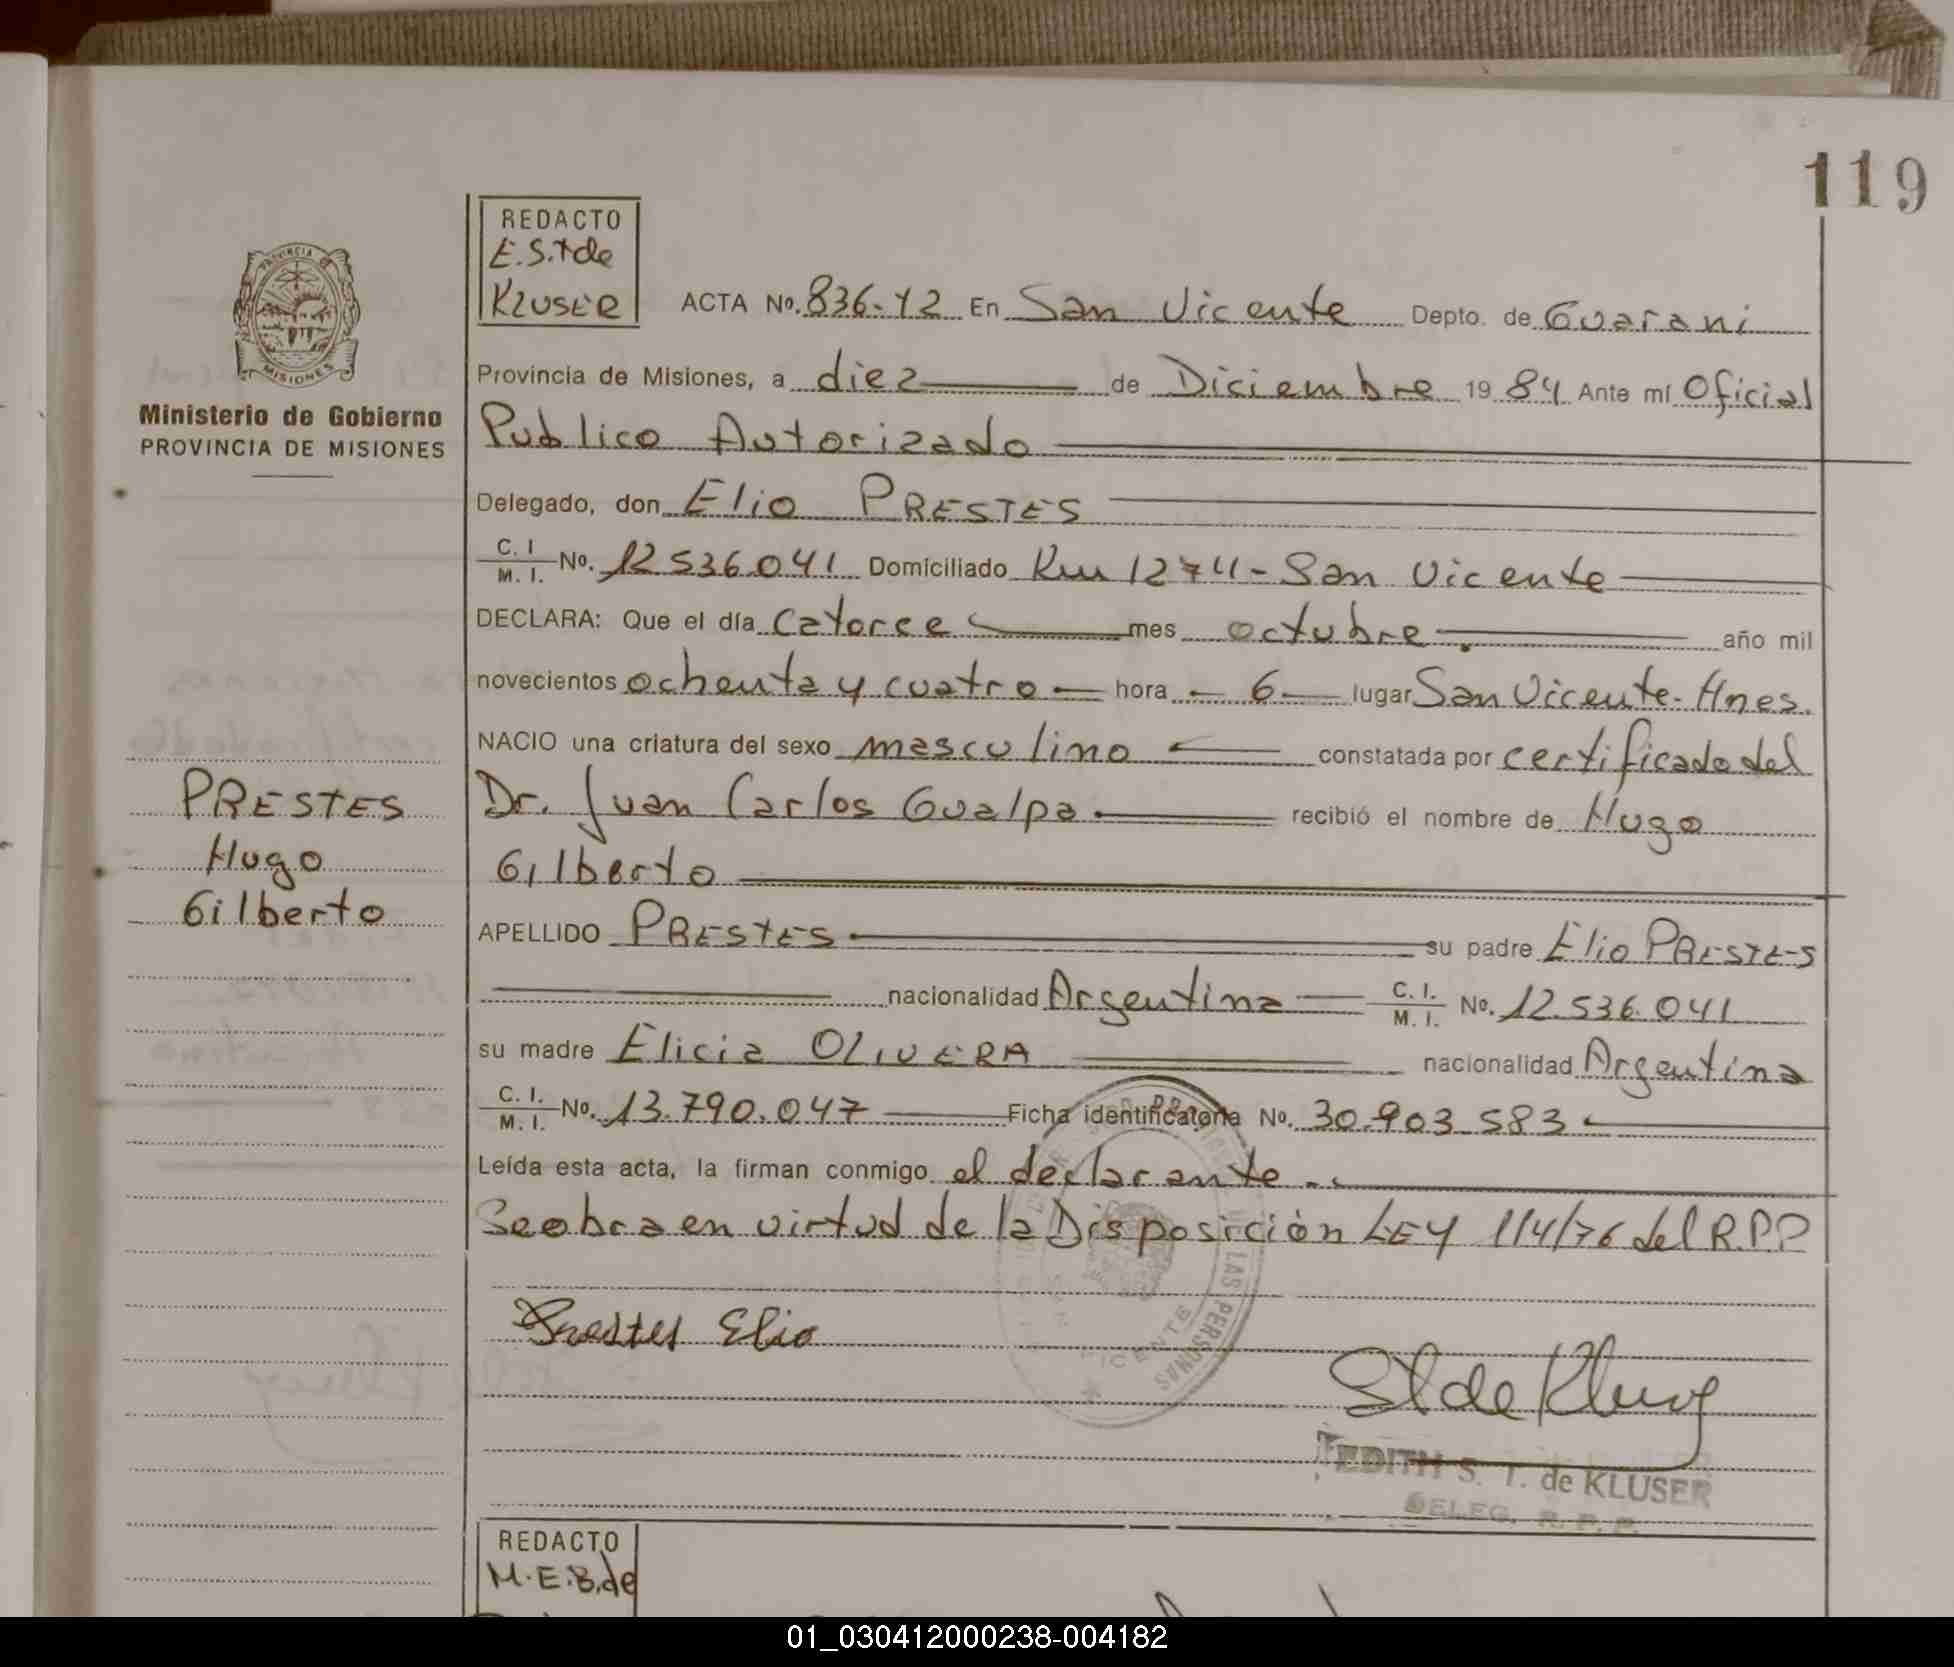 119
REDACTO
E.S.T de
KLUSER
PROVINCIA
MISIONES
Ministerio de Gobierno
PROVINCIA DE MISIONES
ACTA No. 836-12 En San Vicente Depto. de Guarani
Provincia de Misiones, a diez de Diciembre 1984 Ante mí Oficial
Publico Autorizado
Delegado, don Elio PRESTES
C. I. M. I. No. 12536.041 Domiciliado Km 1274 - San Vicente
DECLARA: Que el día catorce mes octubre año mil
novecientos ochenta y cuatro hora 6 lugar San Vicente - Mnes.
NACIO una criatura del sexo masculino constatada por certificado del
Dr. Juan Carlos Gualpa recibió el nombre de Hugo
Gilberto
APELLIDO PRESTES su padre Elio PRESTES
nacionalidad Argentina C. I. M. I. No. 12.536.041
su madre Elicia OLIVERA nacionalidad Argentina
C. I. M. I. No. 13.790.047 Ficha identificatoria No. 30.903.583
Leída esta acta, la firman conmigo el declarante.
Se obra en virtud de la Disposición LEY 114/76 del R.P.P
PRESTES
Hugo
Gilberto
Prestes Elio
LAS PERSONAS
VICENTE
EDITH S. T. de KLUSER
DELEG. R. P. P.
REDACTO
M.E.B. de
01_030412000238-004182